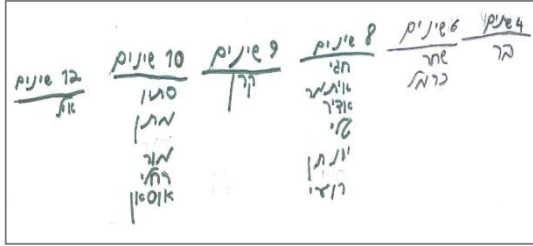 4 שינים
בר
6 שינים
שחר
כרמל
8 שינים
חגי
איתמר
אדיר
טלי
יונתן
רועי
9 שינים
קרן
10 שינים
סתיו
מתן
מור
רחלי
12 שינים
אייל